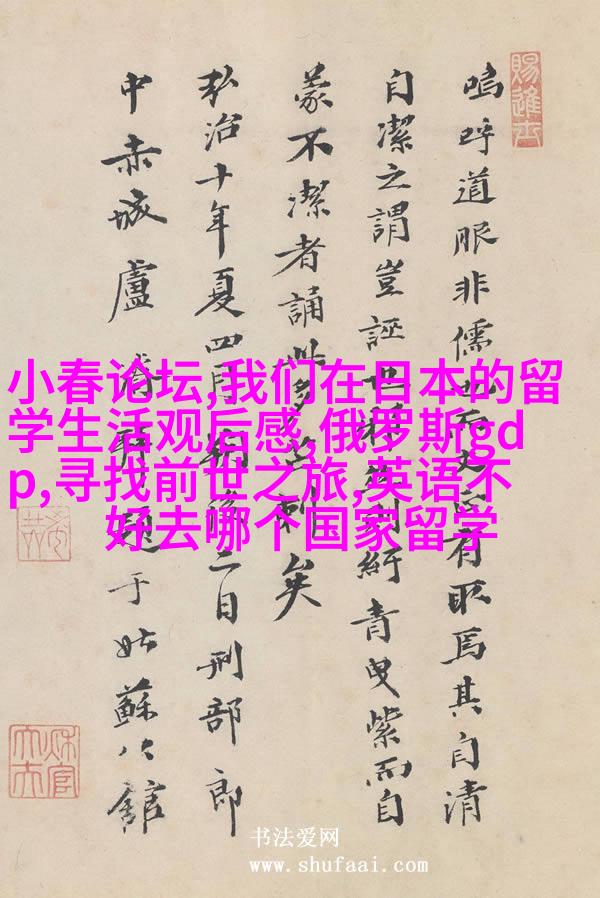 小春论坛,我们在日本的留
学生活观后感,俄罗斯gd
p,寻找前世之旅,英语不
好去哪个国家留学
賜進士
嗚呼道服非儒有取焉其自清
自潔之謂豈誣也紆青曳紫而自
蒙不潔者誦此多矣
弘治十年夏四月朔後二日刑部郎
中赤城盧題于姑蘇公館
书法爱网
www.shufaai.com